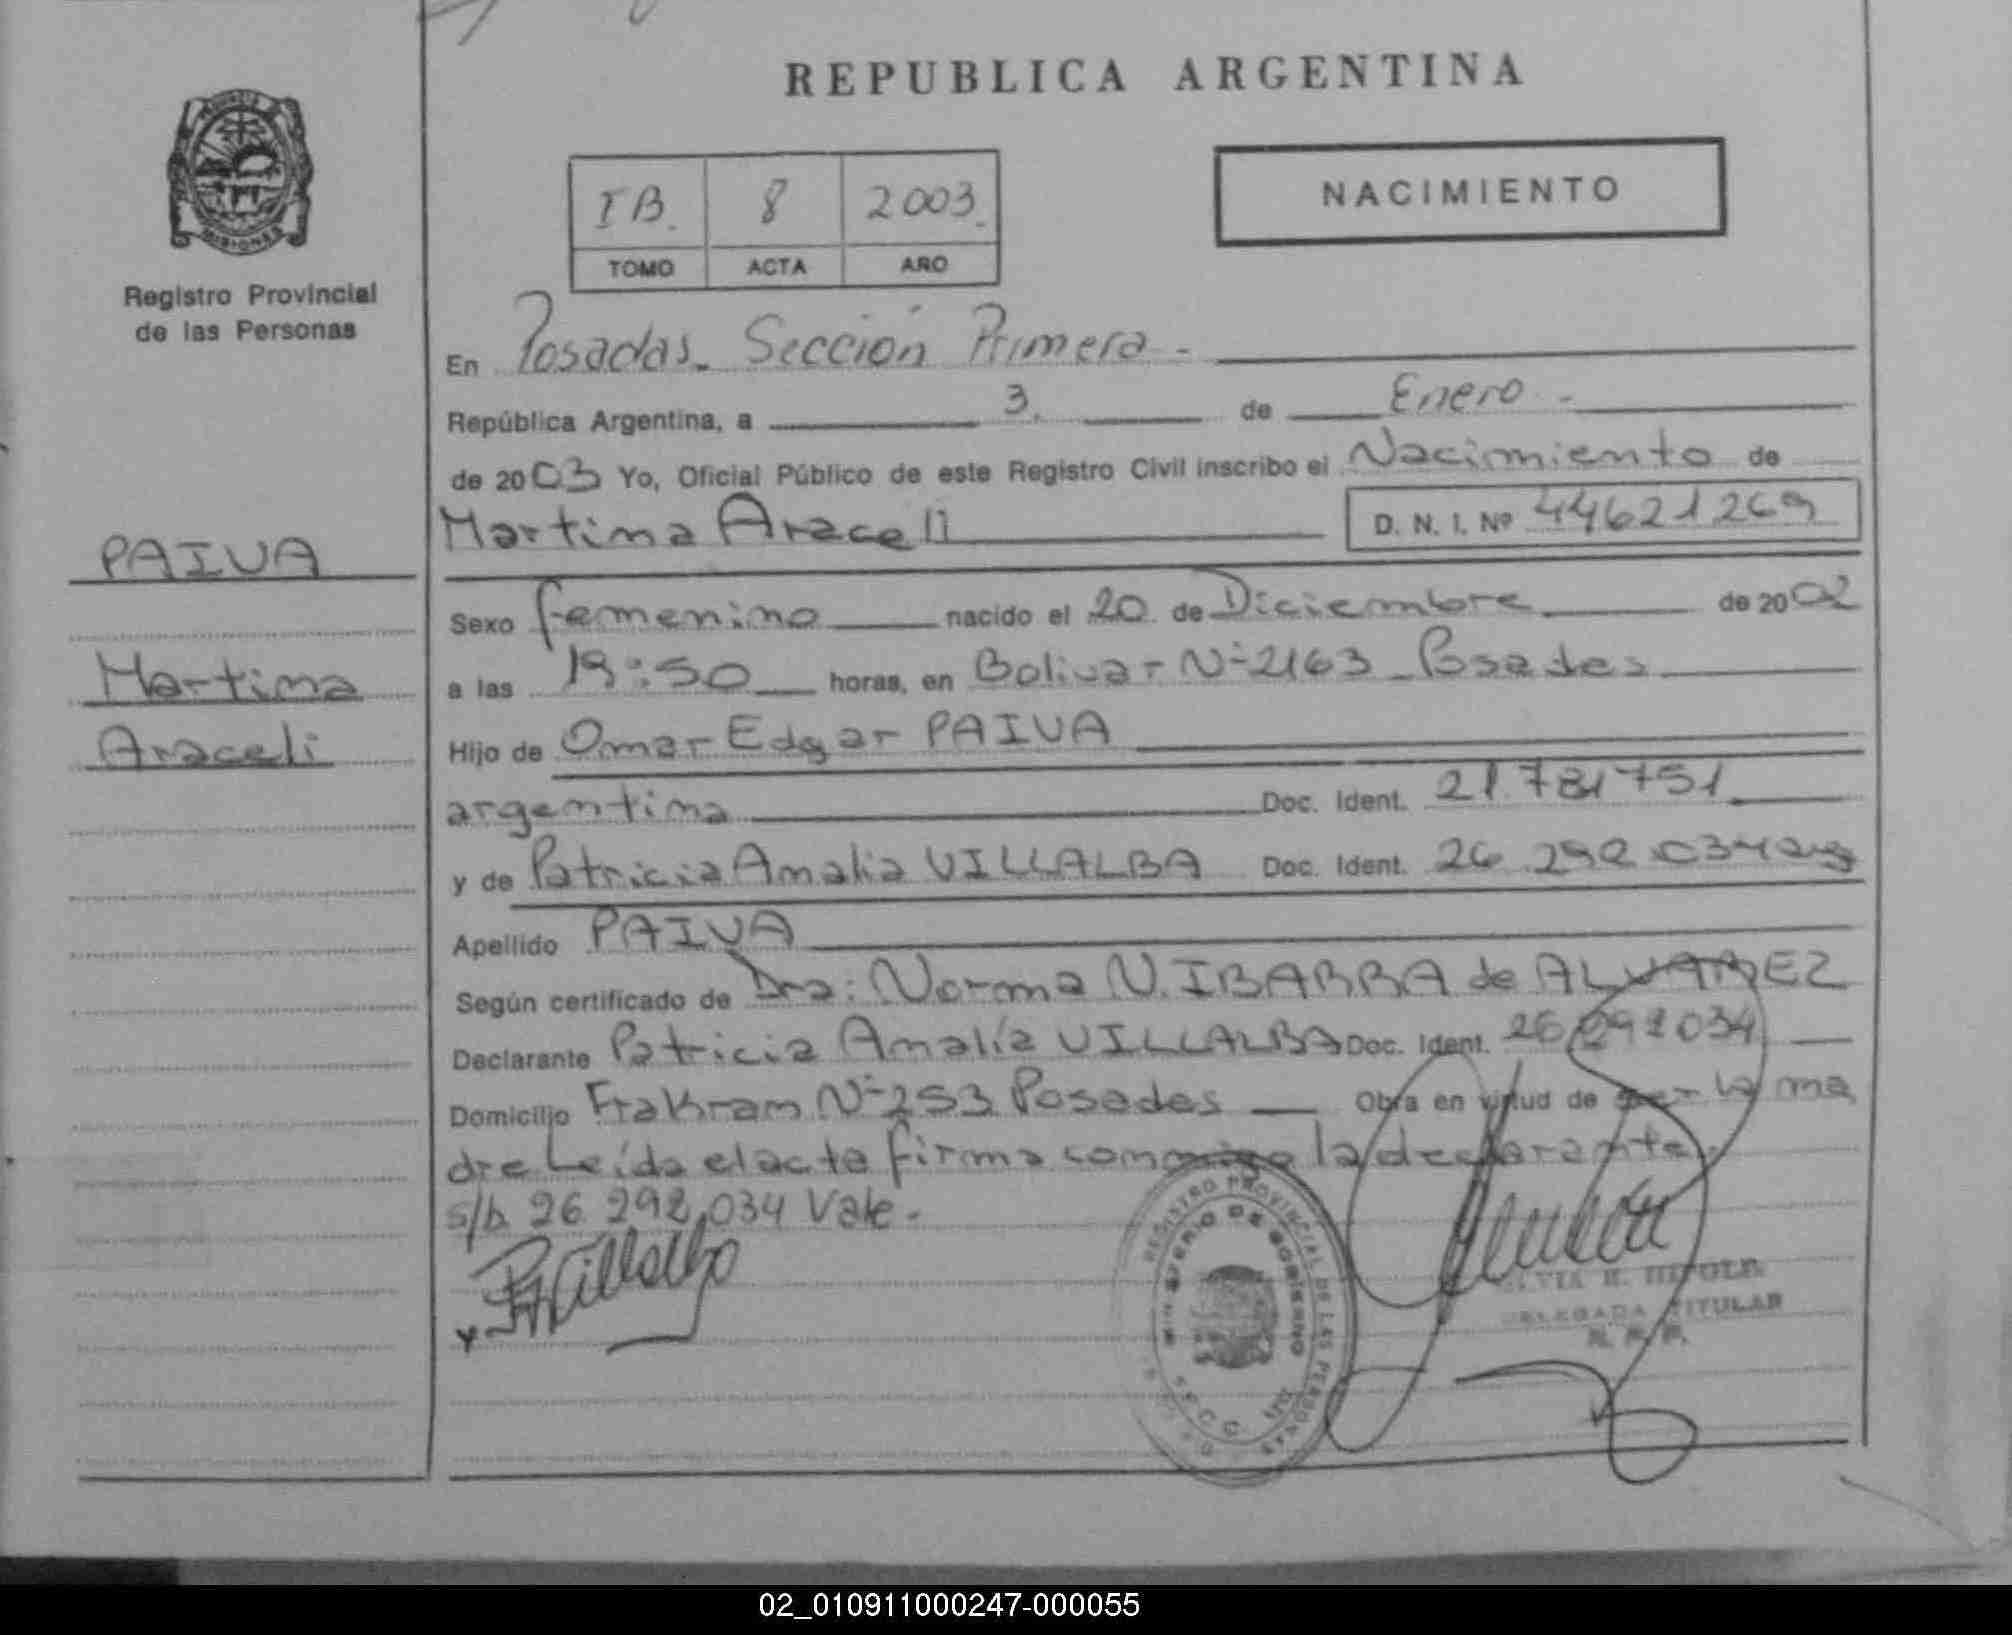 REPUBLICA ARGENTINA
MISIONES
Registro Provincial
de las Personas
IB. 8 2003.
TOMO ACTA AÑO
NACIMIENTO
En Posadas. Sección Primera.-
República Argentina, a 3. de Enero.-
de 2003 Yo, Oficial Público de este Registro Civil inscribo el Nacimiento de
Martina Araceli D. N. I. Nº 44621269
PAIVA
Martina
Araceli
Sexo femenino nacido el 20 de Diciembre de 2002
a las 19:50 horas, en Bolivar Nº 2163 Posadas
Hijo de Omar Edgar PAIVA
argentina Doc. Ident. 21.781751
y de Patricia Amalia VILLALBA Doc. Ident. 26.292.034
Apellido PAIVA
Según certificado de Dra: Norma N. IBARRA de ALVAREZ
Declarante Patricia Amalia VILLALBA Doc. Ident. 26.292034
Domicilio Frakram Nº 253 Posadas Obra en virtud de ser la ma
dre Leída el acta firma conmigo la declarante.
s/b 26.292.034 Vale.-
PAVillalba
REGISTRO PROVINCIAL DE LAS PERSONAS
MINISTERIO DE GOBIERNO
DELEGADA TITULAR
R. P. P.
02_010911000247-000055